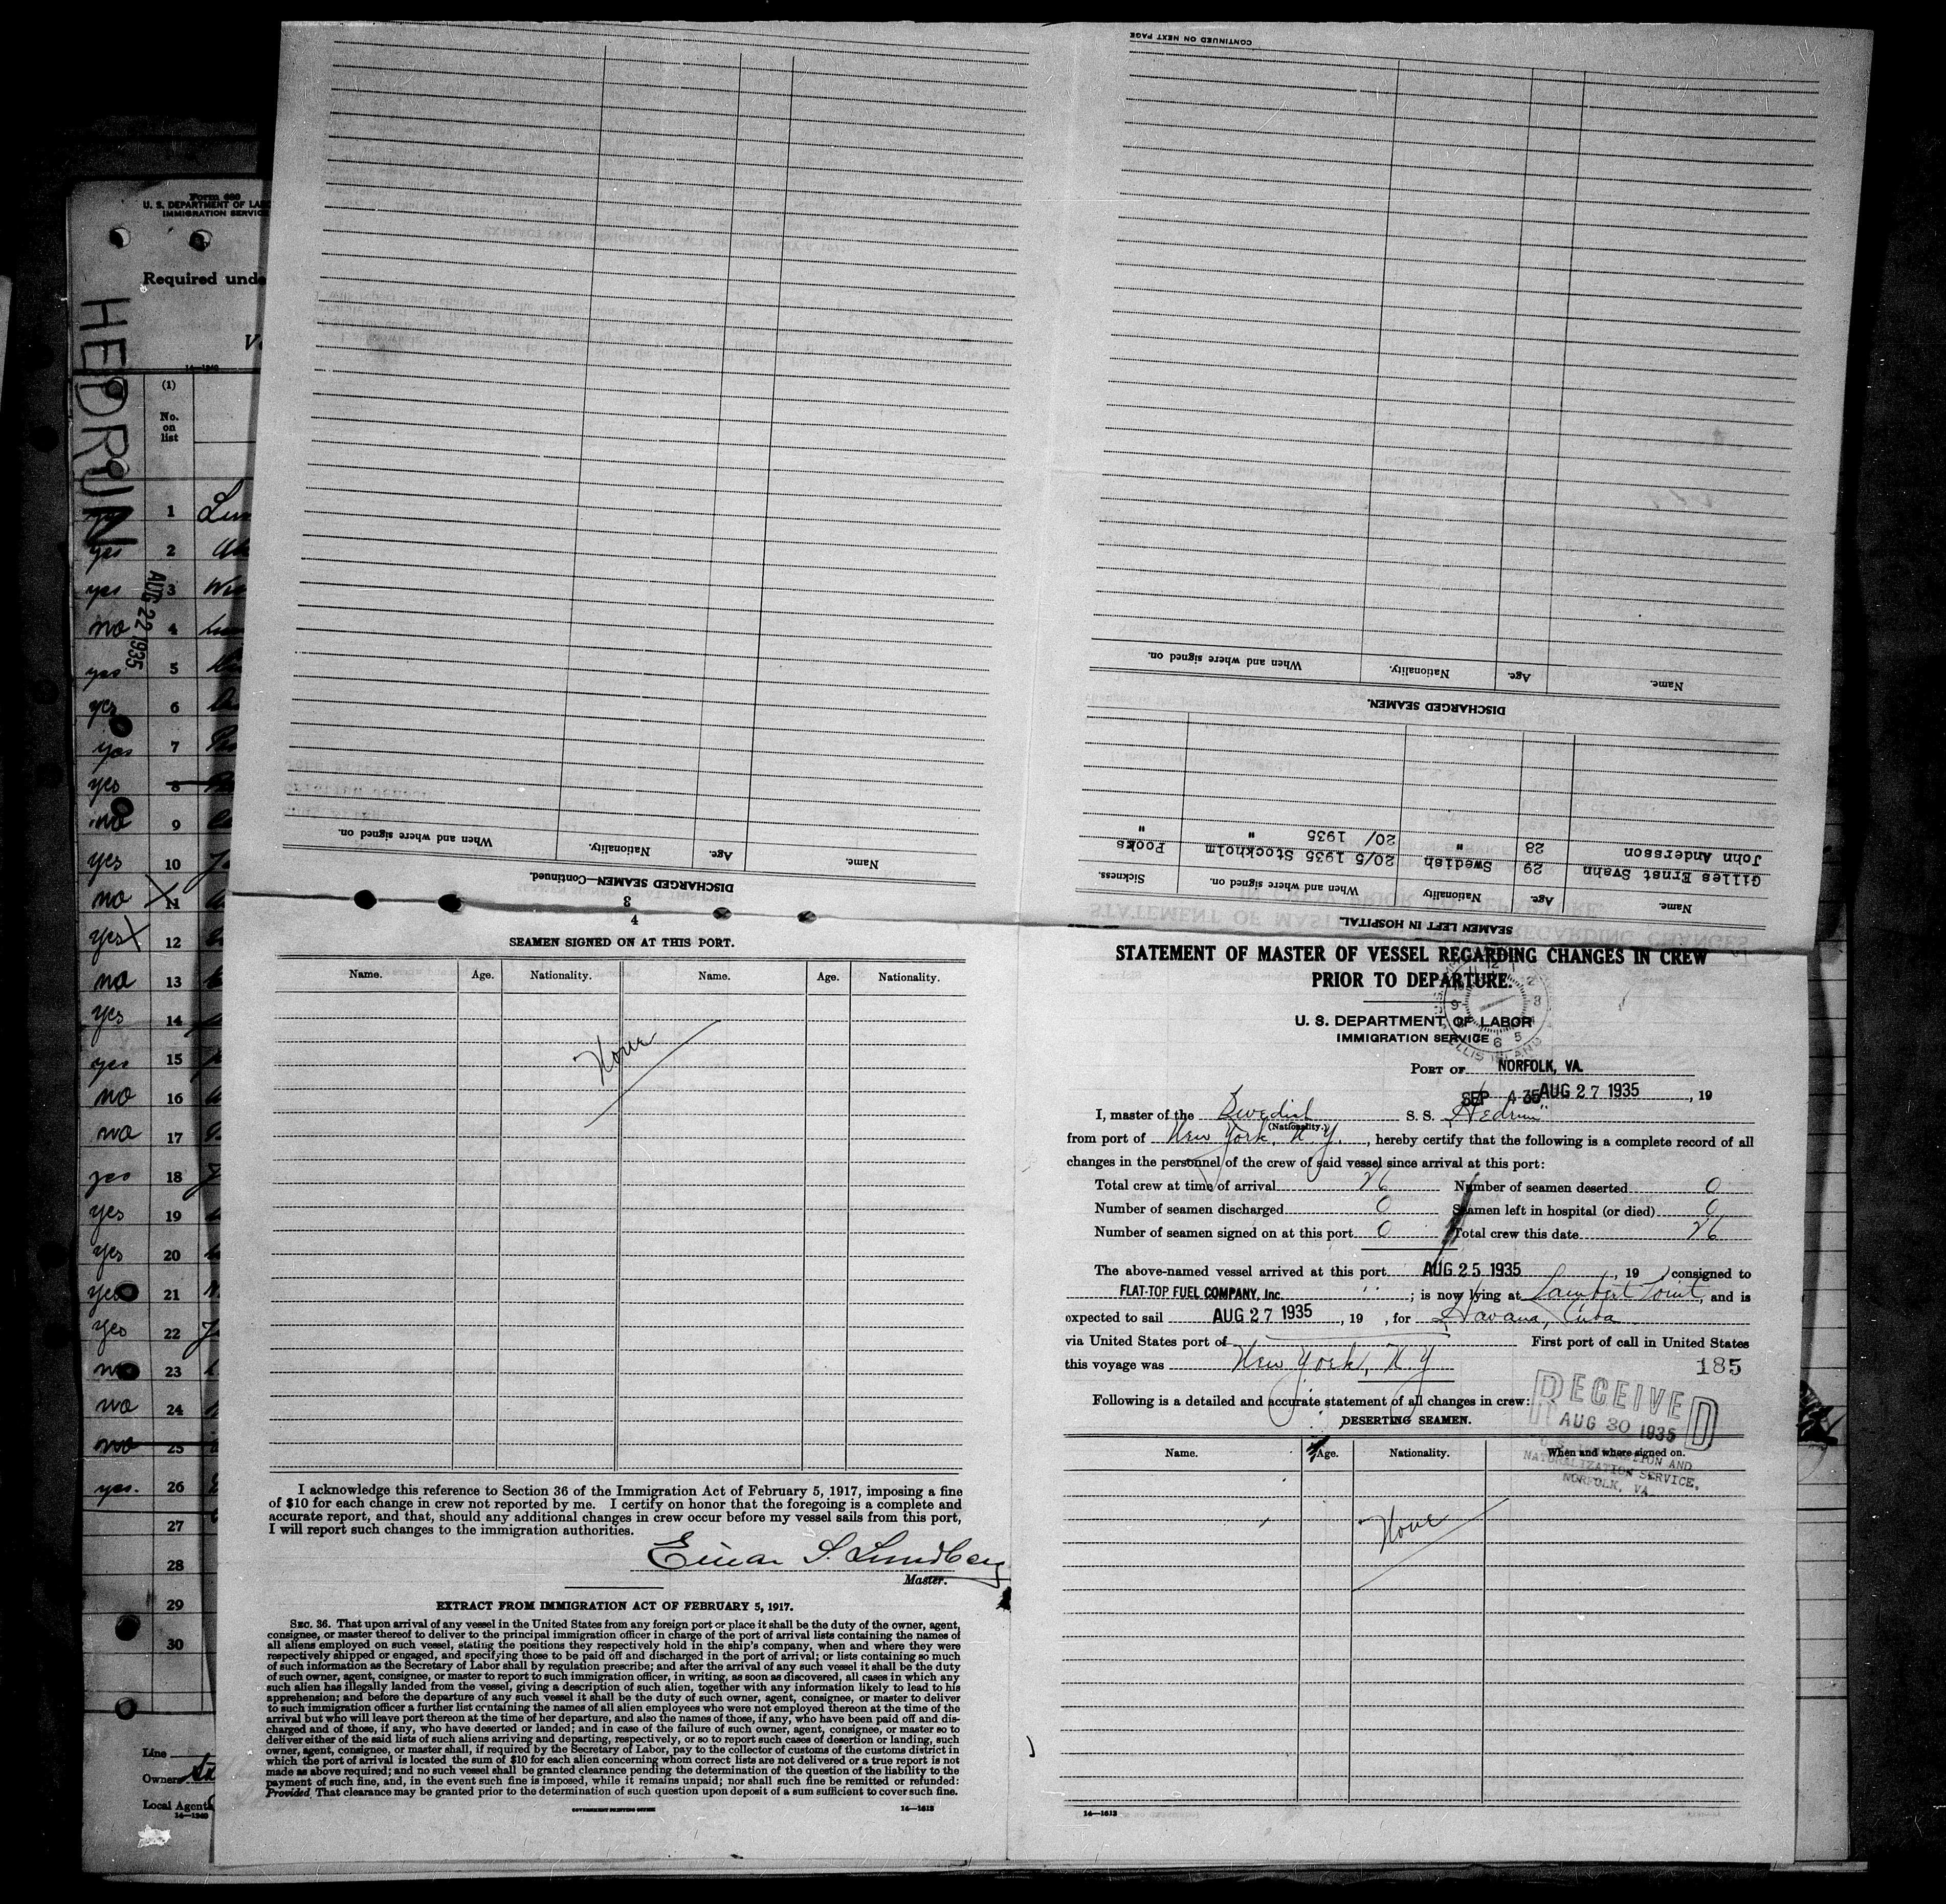 Form 680
U. S. DEPARTMENT OF LABO
IMMIGRATION SERVICE
Required unde
HEDRUN
AUG 22 1935
14—1940
(1)
No.
on
list
1
yes 2
yes 3
no 4
yes 5
yes 6
yes 7
yes 8
no 9
yes 10
no X 11
yes X 12
no 13
yes 14
yes 15
no 16
no 17
yes 18
yes 19
yes 20
yes 21
yes 22
no 23
no 24
no 25
yes. 26
27
28
29
30
Line
Owners
Local Agents
14—1940
DISCHARGED SEAMEN—Continued.
Name. Age. Nationality. When and where signed on.
3
SEAMEN LEFT IN HOSPITAL.
Name. Age. Nationality When and where signed on. Sickness.
Gilles Ernst Svahn 29 Swedish 20/5 1935 Stockholm Pocks
John Andersson 28 " 20/ 1935 " "
DISCHARGED SEAMEN.
Name. Age. Nationality. When and where signed on.
CONTINUED ON NEXT PAGE
4
SEAMEN SIGNED ON AT THIS PORT.
Name. Age. Nationality. Name. Age. Nationality.
None
I acknowledge this reference to Section 36 of the Immigration Act of February 5, 1917, imposing a fine
of $10 for each change in crew not reported by me. I certify on honor that the foregoing is a complete and
accurate report, and that, should any additional changes in crew occur before my vessel sails from this port,
I will report such changes to the immigration authorities.
Einar S. Lundberg
Master.
EXTRACT FROM IMMIGRATION ACT OF FEBRUARY 5, 1917.
SEC. 36. That upon arrival of any vessel in the United States from any foreign port or place it shall be the duty of the owner, agent,
consignee, or master thereof to deliver to the principal immigration officer in charge of the port of arrival lists containing the names of
all aliens employed on such vessel, stating the positions they respectively hold in the ship's company, when and where they were
respectively shipped or engaged, and specifying those to be paid off and discharged in the port of arrival; or lists containing so much
of such information as the Secretary of Labor shall by regulation prescribe; and after the arrival of any such vessel it shall be the duty
of such owner, agent, consignee, or master to report to such immigration officer, in writing, as soon as discovered, all cases in which any
such alien has illegally landed from the vessel, giving a description of such alien, together with any information likely to lead to his
apprehension; and before the departure of any such vessel it shall be the duty of such owner, agent, consignee, or master to deliver
to such immigration officer a further list containing the names of all alien employees who were not employed thereon at the time of the
arrival but who will leave port thereon at the time of her departure, and also the names of those, if any, who have been paid off and dis-
charged and of those, if any, who have deserted or landed; and in case of the failure of such owner, agent, consignee, or master so to
deliver either of the said lists of such aliens arriving and departing, respectively, or so to report such cases of desertion or landing, such
owner, agent, consignee, or master shall, if required by the Secretary of Labor, pay to the collector of customs of the customs district in
which the port of arrival is located the sum of $10 for each alien concerning whom correct lists are not delivered or a true report is not
made as above required; and no such vessel shall be granted clearance pending the determination of the question of the liability to the
payment of such fine, and, in the event such fine is imposed, while it remains unpaid; nor shall such fine be remitted or refunded:
Provided, That clearance may be granted prior to the determination of such question upon deposit of a sum sufficient to cover such fine.
GOVERNMENT PRINTING OFFICE 14—1613
STATEMENT OF MASTER OF VESSEL REGARDING CHANGES IN CREW
PRIOR TO DEPARTURE.
U. S. DEPARTMENT OF LABOR
IMMIGRATION SERVICE
ELLIS ISLAND
PORT OF NORFOLK, VA.
SEP 4 35 AUG 27 1935, 19
I, master of the Swedish S. S. "Hedrun"
(Nationality.)
from port of New York, N. Y., hereby certify that the following is a complete record of all
changes in the personnel of the crew of said vessel since arrival at this port:
Total crew at time of arrival 26 Number of seamen deserted 0
Number of seamen discharged 0 Seamen left in hospital (or died) 0
Number of seamen signed on at this port 0 Total crew this date 26
The above-named vessel arrived at this port AUG 25 1935, 19 , consigned to
FLAT-TOP FUEL COMPANY, Inc. ; is now lying at Lambert Point, and is
expected to sail AUG 27 1935, 19 , for Havana, Cuba
via United States port of First port of call in United States
this voyage was New York, N. Y. 185
Following is a detailed and accurate statement of all changes in crew:
DESERTING SEAMEN.
RECEIVED
AUG 30 1935
NATURALIZATION SERVICE,
NORFOLK, VA.
Name. Age. Nationality. When and where signed on.
None
14—1613